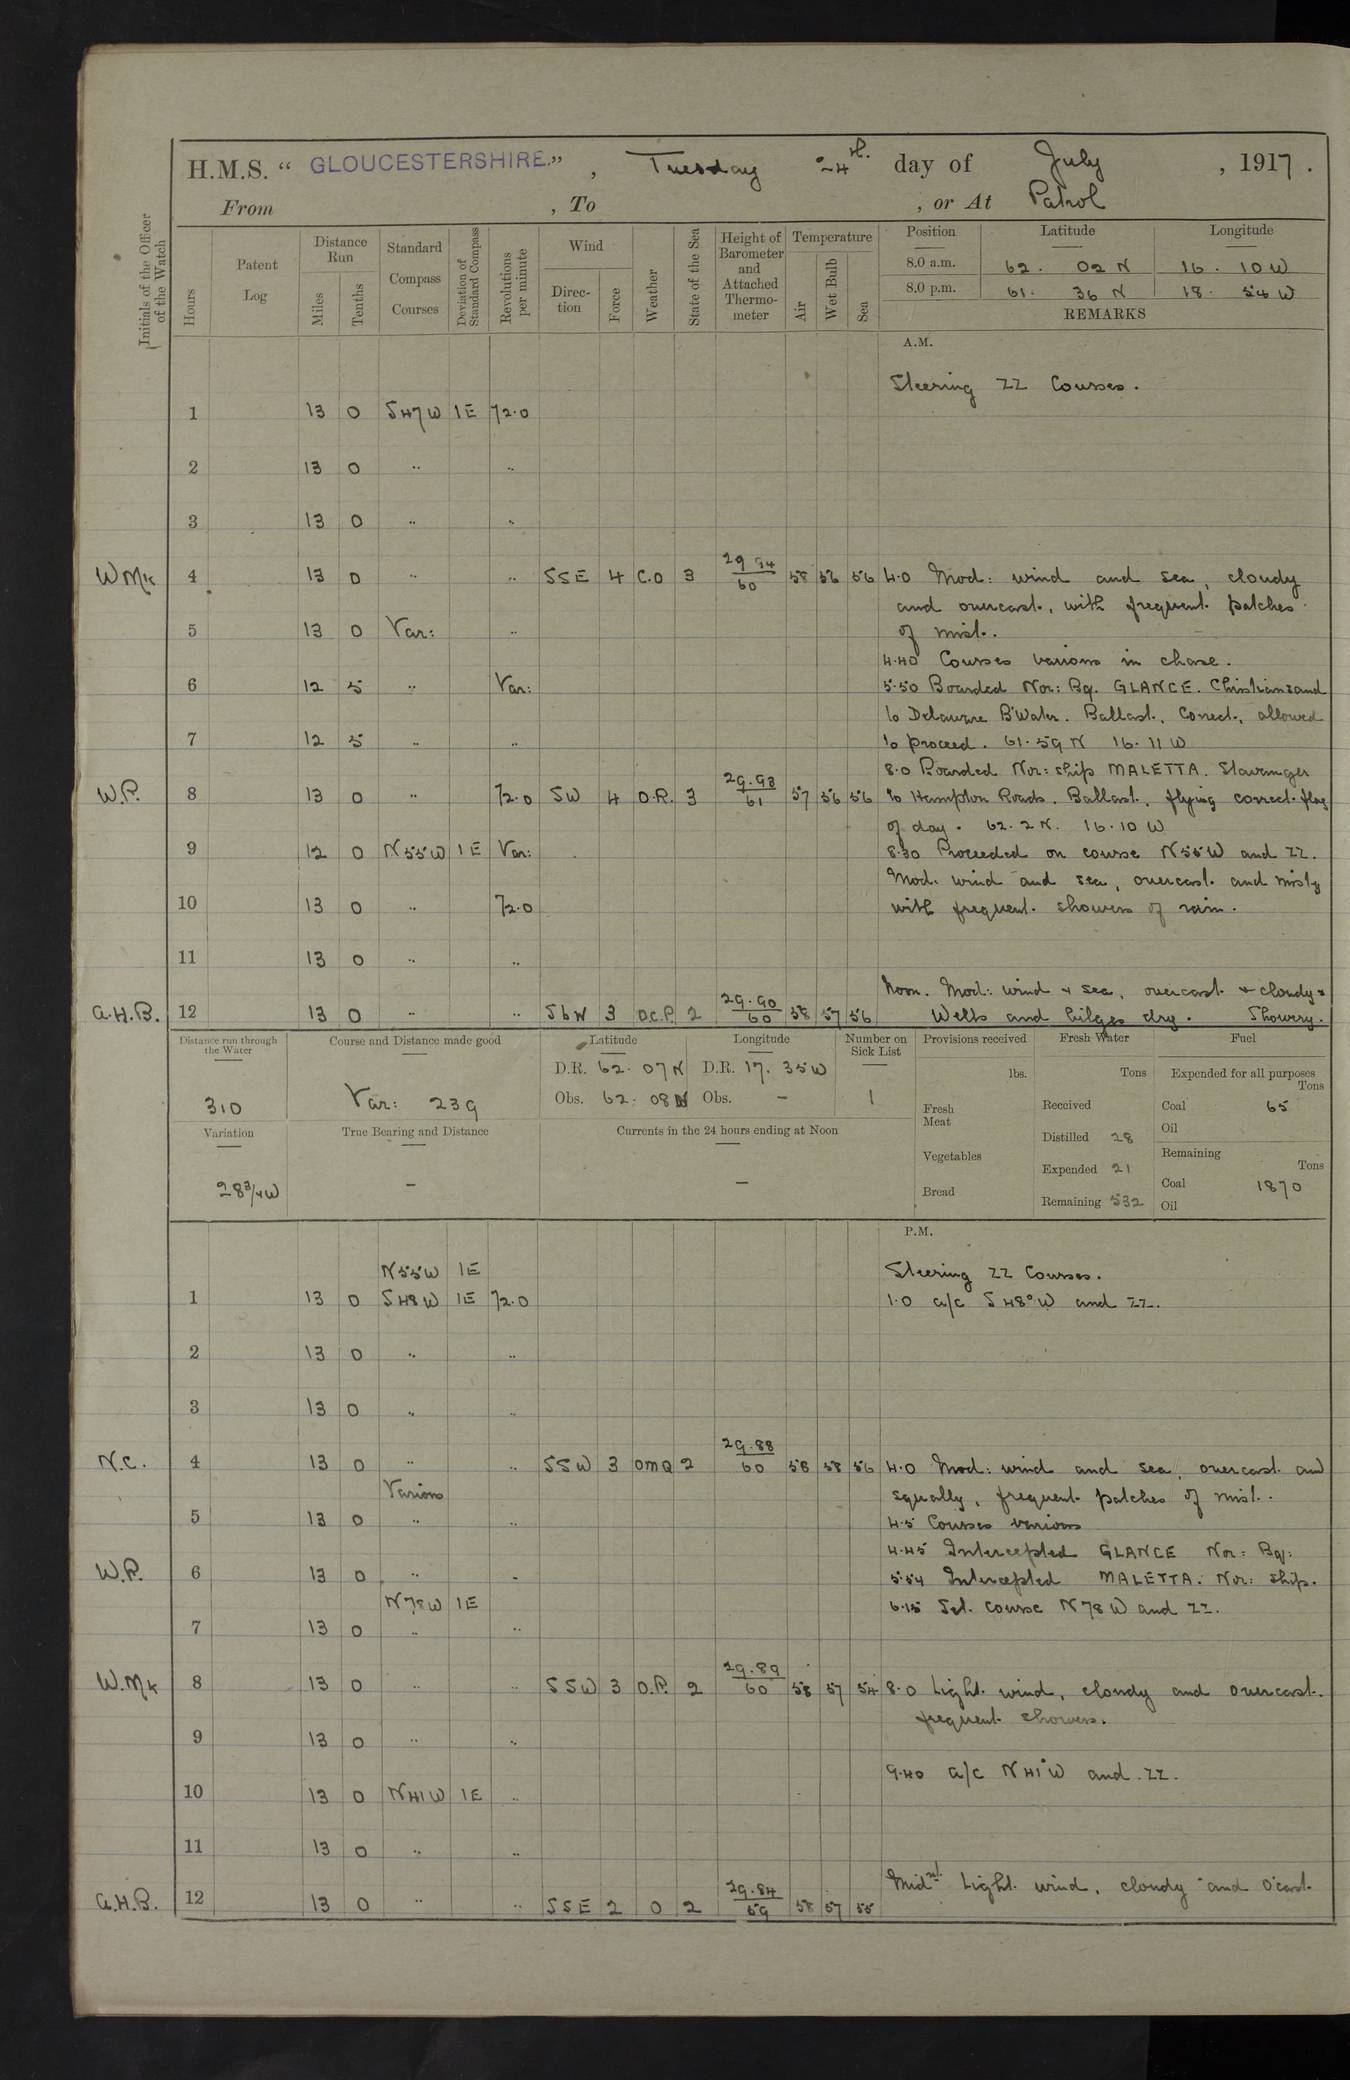 H.M.S. “ GLOUCESTERSHIRE.” , Tuesday 24th. day of July , 1917 .
From , To , or At Patrol
Initials of the Officer of the Watch
Hours
Patent Log
Distance Run
Miles
Tenths
Standard Compass Courses
Deviation of Standard Compass
Revolutions per minute
Wind
Direc-tion
Force
Weather
State of the Sea
Height of Barometer and Attached Thermo-meter
Temperature
Air
Wet Bulb
Sea
Position Latitude Longitude
8.0 a.m. 62. 02 N 16. 10 W
8.0 p.m. 61. 36 N 18. 54 W
REMARKS
A.M.
Steering ZZ Courses.
1 13 0 S47W 1E 72.0
2 13 0 .. ..
3 13 0 .. ..
29.94
WMK 4 13 0 .. .. SSE 4 C.O 3 60 58 56 56 4.0 Mod: wind and sea, cloudy
and overcast, with frequent patches
5 13 0 Var: .. of mist.
4.40 Courses various in chase.
6 12 5 .. Var: 5.50 Boarded Nor: Bq. GLANCE. Christiansand
to Delaware B'Water. Ballast, Correct, allowed
7 12 5 .. .. to proceed. 61.59 N 16.11 W
8.0 Boarded Nor: ship MALETTA. Stavanger
29.93
W.P. 8 13 0 .. 72.0 SW 4 O.R. 3 61 57 56 56 to Hampton Roads. Ballast, flying correct flag
of day. 62.2 N. 16.10 W
9 12 0 N55W 1E Var: 8.30 Proceeded on course N55W and ZZ.
Mod. wind and sea, overcast and misty
10 13 0 .. 72.0 with frequent showers of rain.
11 13 0 .. ..
Noon. Mod: wind & sea, overcast & cloudy &
29.90
A.H.B. 12 13 0 .. .. SbW 3 O.C.P. 2 60 58 57 56 Wells and bilges dry. Showery.
Distance run through the Water
310
Course and Distance made good
Var: 239
Latitude
D.R. 62. 07 N
Obs. 62. 08 N
Longitude
D.R. 17. 35 W
Obs. –
Number on Sick List
1
Variation
28 3/4 W
True Bearing and Distance
–
Currents in the 24 hours ending at Noon
–
Provisions received
lbs.
Fresh Meat
Vegetables
Bread
Fresh Water
Tons
Received
Distilled 28
Expended 21
Remaining 532
Fuel
Expended for all purposes
Tons
Coal 65
Oil
Remaining
Tons
Coal 1870
Oil
P.M.
N55W 1E Steering ZZ Courses.
1 13 0 S48W 1E 72.0 1.0 a/c S 48°W and ZZ.
2 13 0 .. ..
3 13 0 .. ..
29.88
N.C. 4 13 0 .. .. SSW 3 OMQ 2 60 58 58 56 4.0 Mod: wind and sea, overcast and
Various squally, frequent patches of mist.
5 13 0 .. .. 4.5 Courses various
4.45 Intercepted GLANCE Nor: Bq:
W.P. 6 13 0 .. .. 5.54 Intercepted MALETTA. Nor: ship.
N78W 1E 6.15 Set course N78W and ZZ.
7 13 0 .. ..
29.89
W.MK 8 13 0 .. .. SSW 3 O.P. 2 60 58 57 54 8.0 Light wind, cloudy and overcast.
frequent showers.
9 13 0 .. ..
9.40 a/c N41°W and ZZ.
10 13 0 N41W 1E ..
11 13 0 .. ..
Midnt. Light wind, cloudy and o'cast.
29.84
A.H.B. 12 13 0 .. .. SSE 2 O 2 59 58 57 55